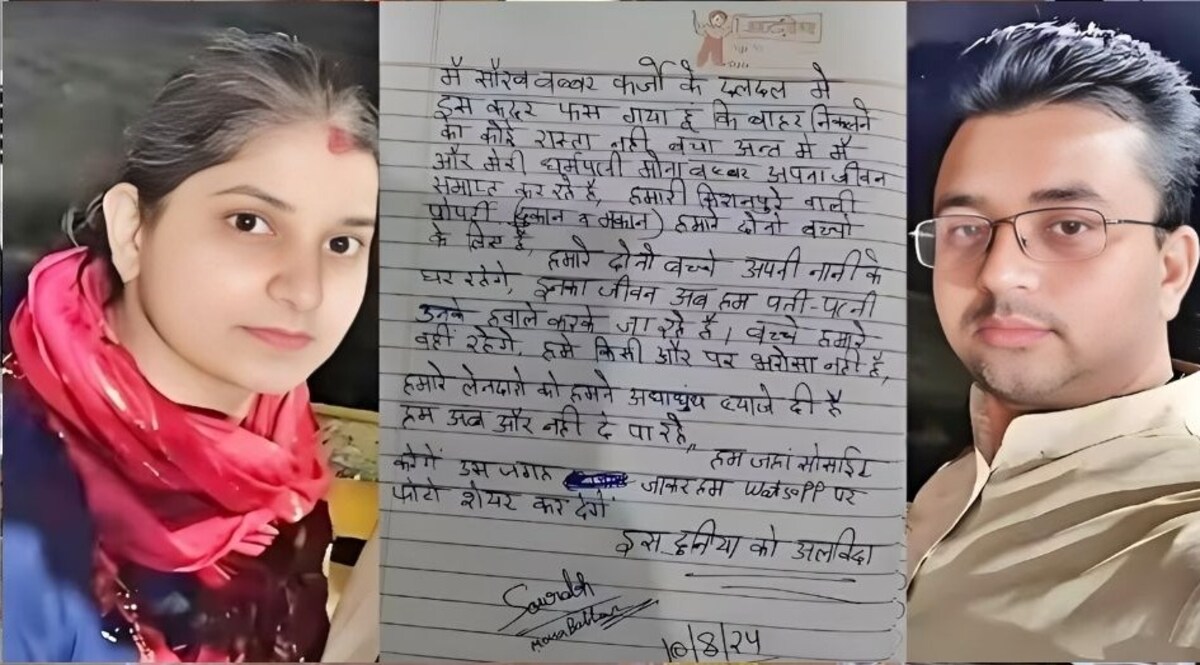 मैं सौरव बब्बर कर्जो के दलदल मे
इस कदर फस गया हूं कि बाहर निकलने
का कोई रास्ता नही बचा अन्त मे मैं
और मेरी धर्मपत्नी मोना बब्बर अपना जीवन
समाप्त कर रहे है, हमारी किशनपुरे वाली
प्रोपर्टी (दुकान व मकान) हमारे दोनो बच्चो
के लिए है, हमारे दोनो बच्चे अपनी नानी के
घर रहेगे, इनका जीवन अब हम पती-पत्नी
उनके हवाले करके जा रहे है। बच्चे हमारे
वहीं रहेगे, हमे किसी और पर भरोसा नही है,
हमारे लेनदारो को हमने अधाधुंध ब्याजे दी है
हम अब और नही दे पा रहे,
हम जहां सोसाईट
करेगें उस जगह जाकर हम WatsaPP पर
फोटो शेयर कर देगें
इस दुनिया को अलविदा
Saurabh
Mona Babbar
10/8/24